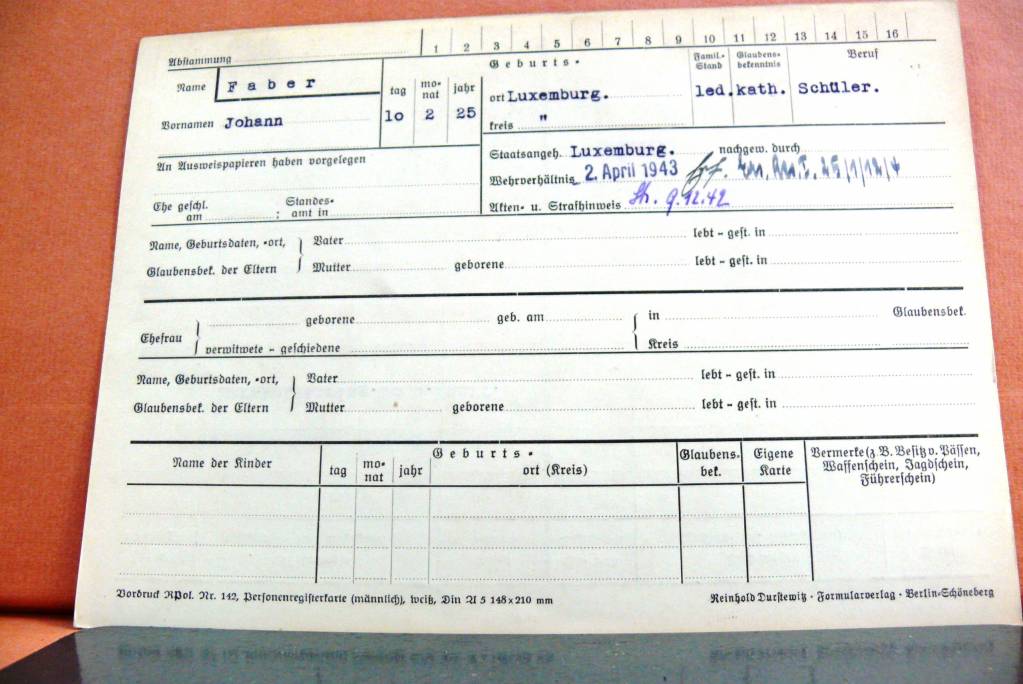 Abstammung 1 2 3 4 5 6 7 8 9 10 11 12 13 14 15 16
Name Faber tag mo-nat jahr Geburts- Famil.-Stand Glaubens-bekenntnis Beruf
ort Luxemburg. led. kath. Schüler.
Vornamen Johann 10 2 25 kreis "
An Ausweispapieren haben vorgelegen
Staatsangeh. Luxemburg. nachgew. durch
Wehrverhältnis 2. April 1943
Ehe geschl. am ; Standes-amt in
Akten- u. Strafhinweis 9.12.42
Name, Geburtsdaten, -ort, Vater lebt - gest. in
Glaubensbek. der Eltern Mutter geborene lebt - gest. in
Ehefrau geborene geb. am in Glaubensbek.
verwitwete - geschiedene Kreis
Name, Geburtsdaten, -ort, Vater lebt - gest. in
Glaubensbek. der Eltern Mutter geborene lebt - gest. in
Name der Kinder tag mo-nat jahr Geburts- ort (Kreis) Glaubens-bek. Eigene Karte Vermerke (z. B. Besitz v. Pässen,
Waffenschein, Jagdschein,
Führerschein)
Vordruck RPol. Nr. 142, Personenregisterkarte (männlich), weiß, Din A 5 148 x 210 mm
Reinhold Durstewitz · Formularverlag · Berlin-Schöneberg